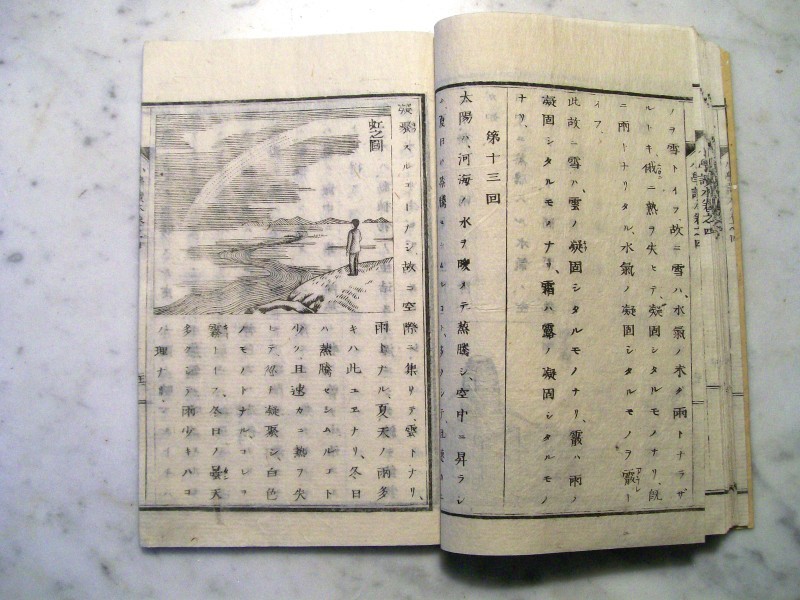 ノヲ雪トイフ、故ニ雪ハ、水氣ノ未タ雨トナラザ
ルトキ俄ニ熱ヲ失ヒテ、凝固シタルモノナリ、既
ニ雨トナリタル、水氣ノ凝固シタルモノヲ霰ー
イフ、
此故ニ雪ハ、雲ノ凝固シタルモノナリ、霰ハ雨ノ
凝固シタルモノナリ、霜ハ露ノ凝固シタルモノ
ナリ、
第十三回
太陽ハ、河海ノ水ヲ暖メテ蒸騰シ、空中ニ昇ラシ
小學讀本卷之四
凝聚スルコ
ナシ、故ニ空際ニ集リテ、雲トナリ、
虹之圖
雨トナル、夏天ノ雨多
キハ此ユヱナリ、冬日
ハ蒸騰セシムルコト
少ク、且速カニ熱ヲ失
ヒテ、忽チ凝聚シ、白色
ノモノトナル、コレヲ
雪トイフ、冬日ノ曇天
多クシテ、雨少キハコ
理ナ